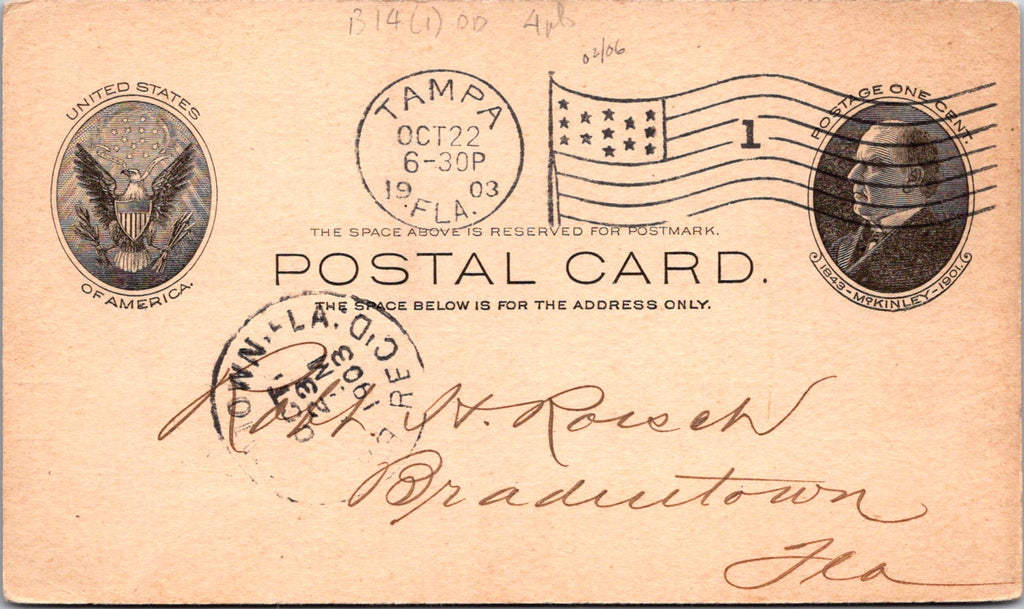 B14(1) DD 4pls
02/06
UNITED STATES
OF AMERICA.
TAMPA
OCT 22
6-30P
1903
FLA.
1
POSTAGE ONE CENT.
1843-McKINLEY-1901.
THE SPACE ABOVE IS RESERVED FOR POSTMARK.
POSTAL CARD.
THE SPACE BELOW IS FOR THE ADDRESS ONLY.
OWN, LA. REC'D.
OCT.
M
1903
Robt H. Roesch
Bradentown
Fla